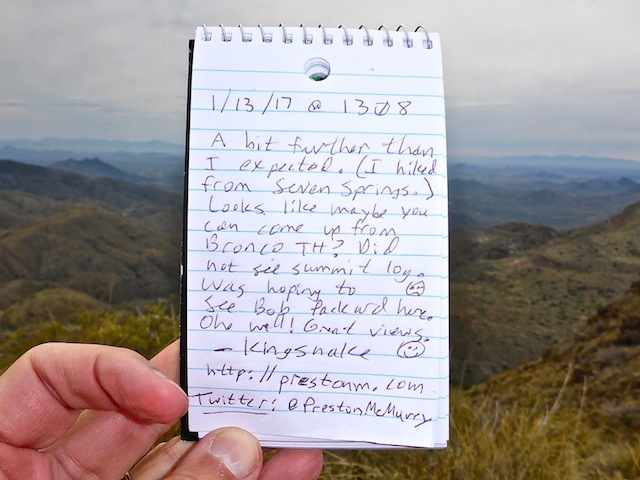 1/13/17 @ 13Ø8
A bit further than
I expected. (I hiked
from Seven Springs.)
Looks like maybe you
can come up from
Bronco TH? Did
not see summit log.
Was hoping to ☹
see Bob Packard here.
Ohe well! Great views.
- Kingsnake ☺
http://prestonm.com
Twitter: @PrestonMcMurry